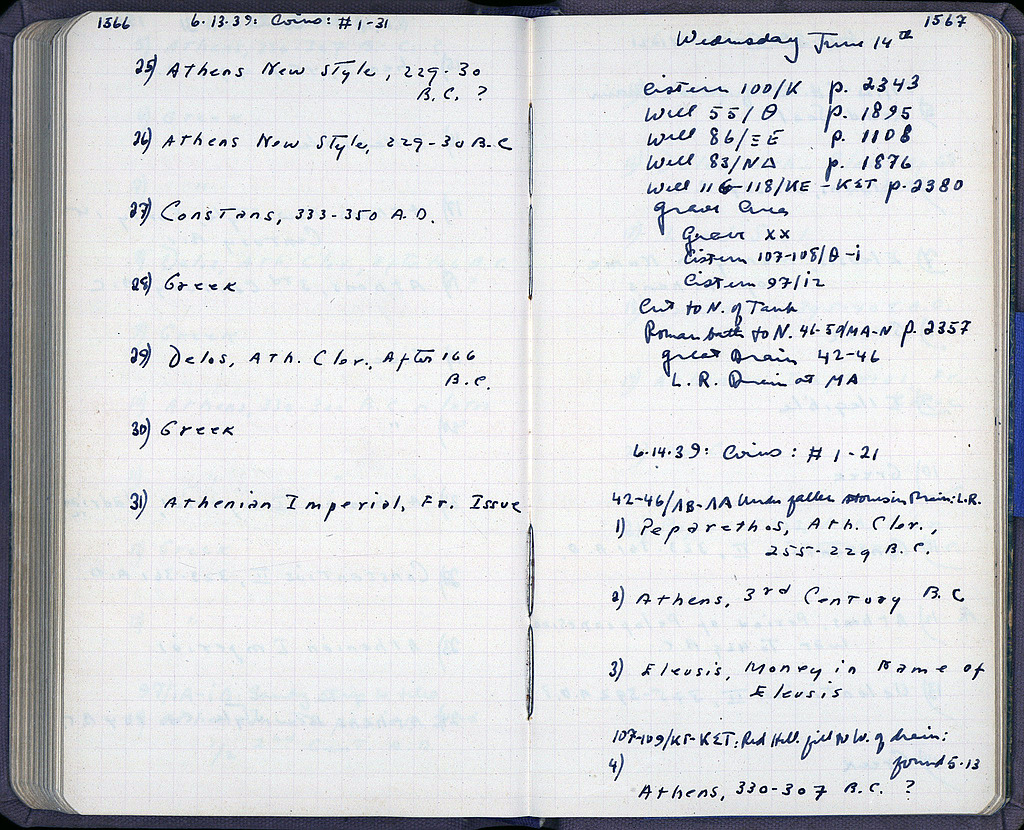 1566
6.13.39: Coins: #1-31
25) Athens New Style, 229-30
B.C. ?
26) Athens New Style, 229-30 B.C
27) Constans, 333-350 A.D.
28) Greek
29) Delos, Ath. Cler. After 166
B.C.
30) Greek
31) Athenian Imperial, Fr. Issue
1567
Wednesday June 14th
Cistern 100/K p. 2343
Well 55/Θ p. 1895
Well 86/ΞE p. 1108
Well 83/ΝΔ p. 1876
Well 116-118/KE - KΣT p. 2380
Grave Area
Grave XX
Cistern 107-108/Θ-i
Cistern 97/i2
Cut to N. of Tank
Roman bath to N. 46-50/MA-N p. 2357
Great Drain 42-46
L. R. Drain at MA
6.14.39: Coins: #1-21
42-46/ΛB-ΛA Under fallen stones in Drain: L.R.
1) Peparethos, Ath. Cler.,
255-229 B.C.
2) Athens, 3rd Century B.C
3) Eleusis, Money in Name of
Eleusis
107-109/KE-KΣT: Red Hell. fill to W. of drain:
4) found 5.13
Athens, 330-307 B.C. ?